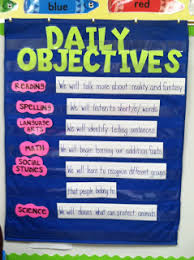 blue
red
DAILY
OBJECTIVES
READING We will talk more about reality and fantasy
SPELLING We will listen to short words
LANGUAGE ARTS We will identify telling sentences
MATH We will begin learning our addition facts
SOCIAL STUDIES We will learn to recognize different groups
that people belong to.
SCIENCE We will discuss what can protect animals